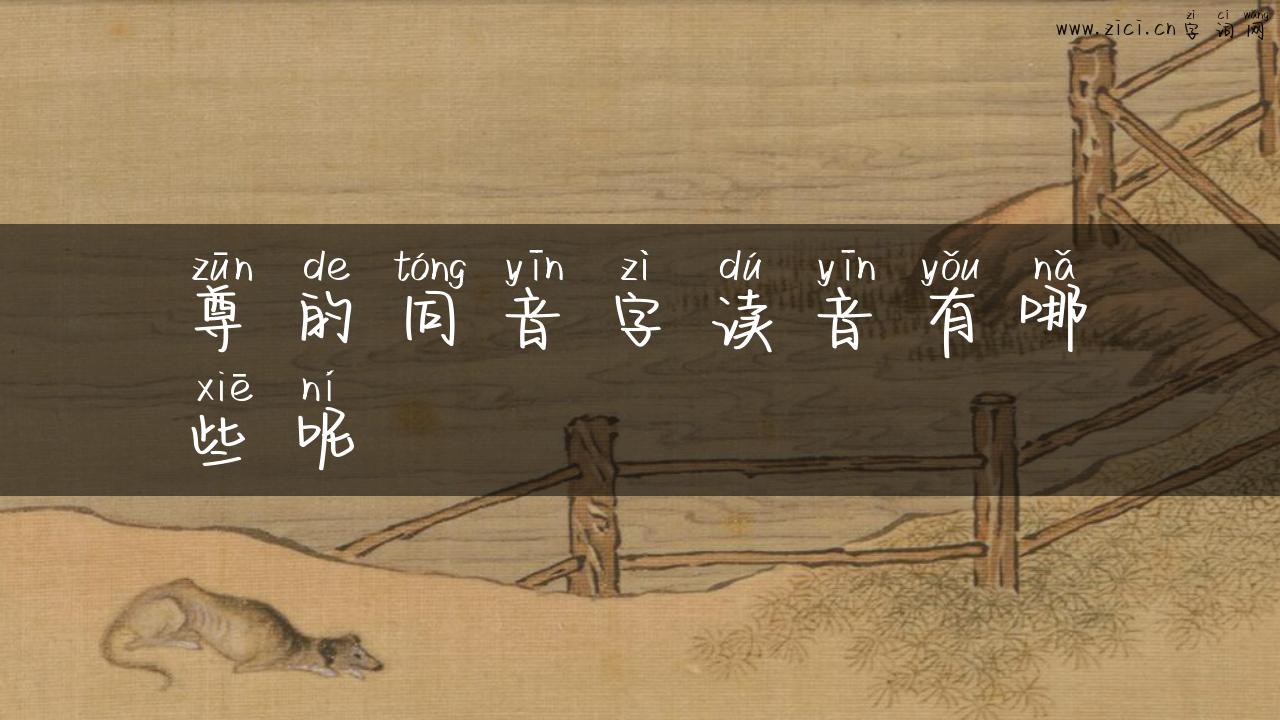 zì cí wǎng
www.zici.cn 字词网
zūn de tóng yīn zì dú yīn yǒu nǎ
尊的同音字读音有哪
xiē ní
些呢